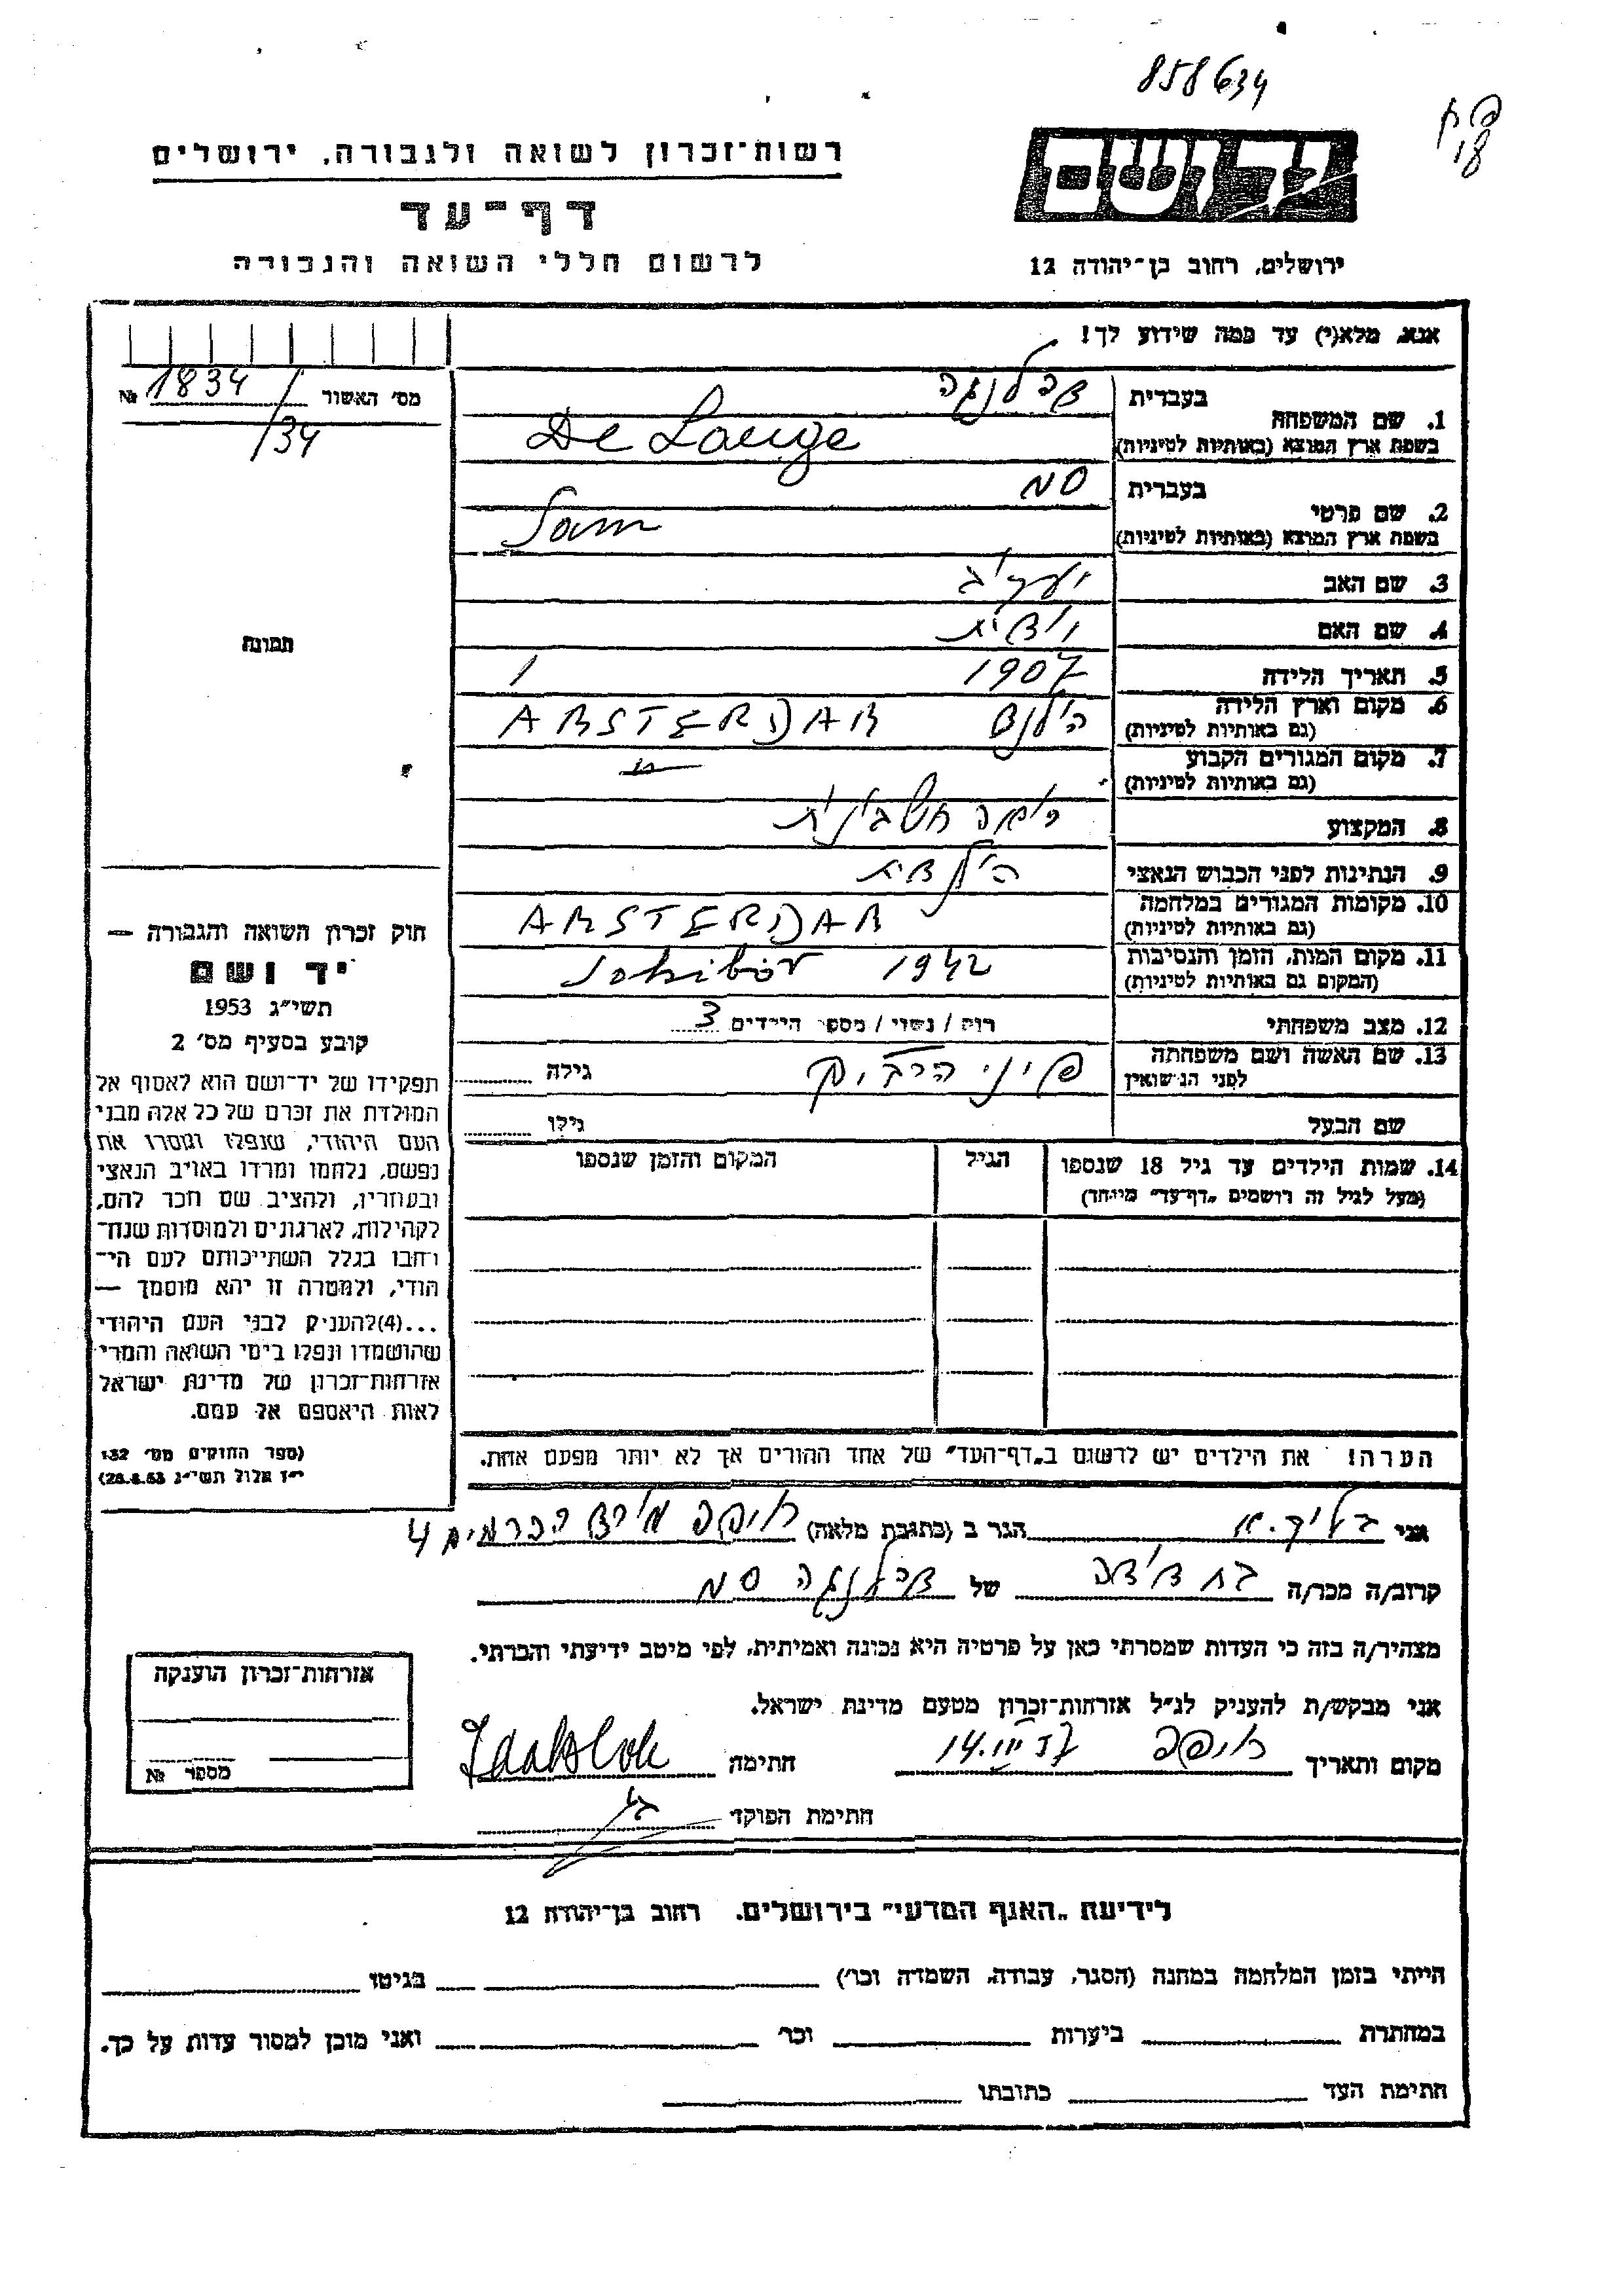 858634
רשות־זכרון לשואה ולגבורה, ירושלים
דף־עד
לרשום חללי השואה והגבורה
ידושם
ירושלים, רחוב בן־יהודה 12
אנא, מלא(י) עד כמה שידוע לך!
מס׳ האשור 1834/ №
/34
1. שם המשפחה
בעברית דה לנגה
בשפת ארץ המוצא (באותיות לטיניות) De Lange
2. שם פרטי
בעברית סם
בשפת ארץ המוצא (באותיות לטיניות) Sam
3. שם האב
4. שם האם יהודית
5. תאריך הלידה 1907
6. מקום וארץ הלידה
(גם באותיות לטיניות) הולנד AMSTERDAM
7. מקום המגורים הקבוע
(גם באותיות לטיניות)
8. המקצוע
9. הנתינות לפני הכבוש הנאצי הולנדית
10. מקומות המגורים במלחמה
(גם באותיות לטיניות) AMSTERDAM
11. מקום המות, הזמן והנסיבות
(המקום גם באותיות לטיניות) Sobibor 1942
12. מצב משפחתי רוק / נשוי / מספר הילדים 3
13. שם האשה ושם משפחתה
לפני הנישואין
גילה
שם הבעל
גילו
14. שמות הילדים עד גיל 18 שנספו
(מעל לגיל זה רושמים „דף־עד״ מיוחד)
הגיל
המקום והזמן שנספו
הערה! את הילדים יש לרשום ב„דף־העד״ של אחד ההורים אך לא יותר מפעם אחת.
תמונה
חוק זכרון השואה והגבורה —
יד ושם
תשי״ג 1953
קובע בסעיף מס׳ 2
תפקידו של יד־ושם הוא לאסוף אל
המולדת את זכרם של כל אלה מבני
העם היהודי, שנפלו ומסרו את
נפשם, נלחמו ומרדו באויב הנאצי
ובעוזריו, ולהציב שם וזכר להם,
לקהילות, לארגונים ולמוסדות שנח־
רבו בגלל השתייכותם לעם הי־
הודי, ולמטרה זו יהא מוסמך —
...(4)להעניק לבני העם היהודי
שהושמדו ונפלו בימי השואה והמרי
אזרחות־זכרון של מדינת ישראל
לאות היאספם אל עמם.
(ספר החוקים מס׳ 132
י״ז אלול תשי״ג 28.8.53)
אני הגר ב (כתובת מלאה) חיפה 4
קרוב/ה מכר/ה בת דודה של דה לנגה סם
מצהיר/ה בזה כי העדות שמסרתי כאן על פרטיה היא נכונה ואמיתית, לפי מיטב ידיעתי והכרתי.
אני מבקש/ת להעניק לנ״ל אזרחות־זכרון מטעם מדינת ישראל.
מקום ותאריך חיפה חתימה
חתימת הפוקד
אזרחות־זכרון הוענקה
מספר №
לידיעת „האגף המדעי״ בירושלים. רחוב בן־יהודה 12
הייתי בזמן המלחמה במחנה (הסגר, עבודה, השמדה וכו׳) בגיטו
במחתרת ביערות וכו׳ ואני מוכן למסור עדות על כך.
חתימת העד כתובתו